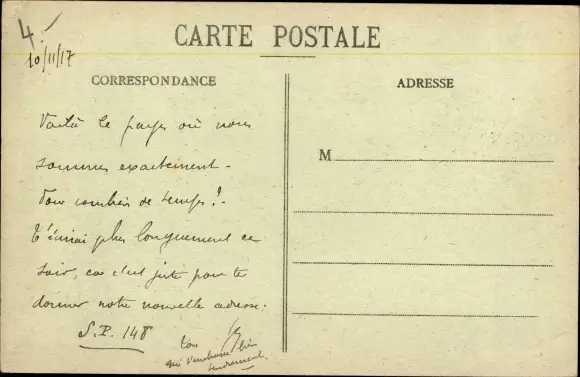 4.-
10/11/17
CARTE POSTALE
CORRESPONDANCE
ADRESSE
Voilà le pays où nous
sommes exactement -
Pour combien de temps ?.
T'écrirai plus longuement ce
soir, car c'est juste pour te
donner notre nouvelle adresse :
S.P. 148
Ton
qui t'embrasse bien
tendrement.
M